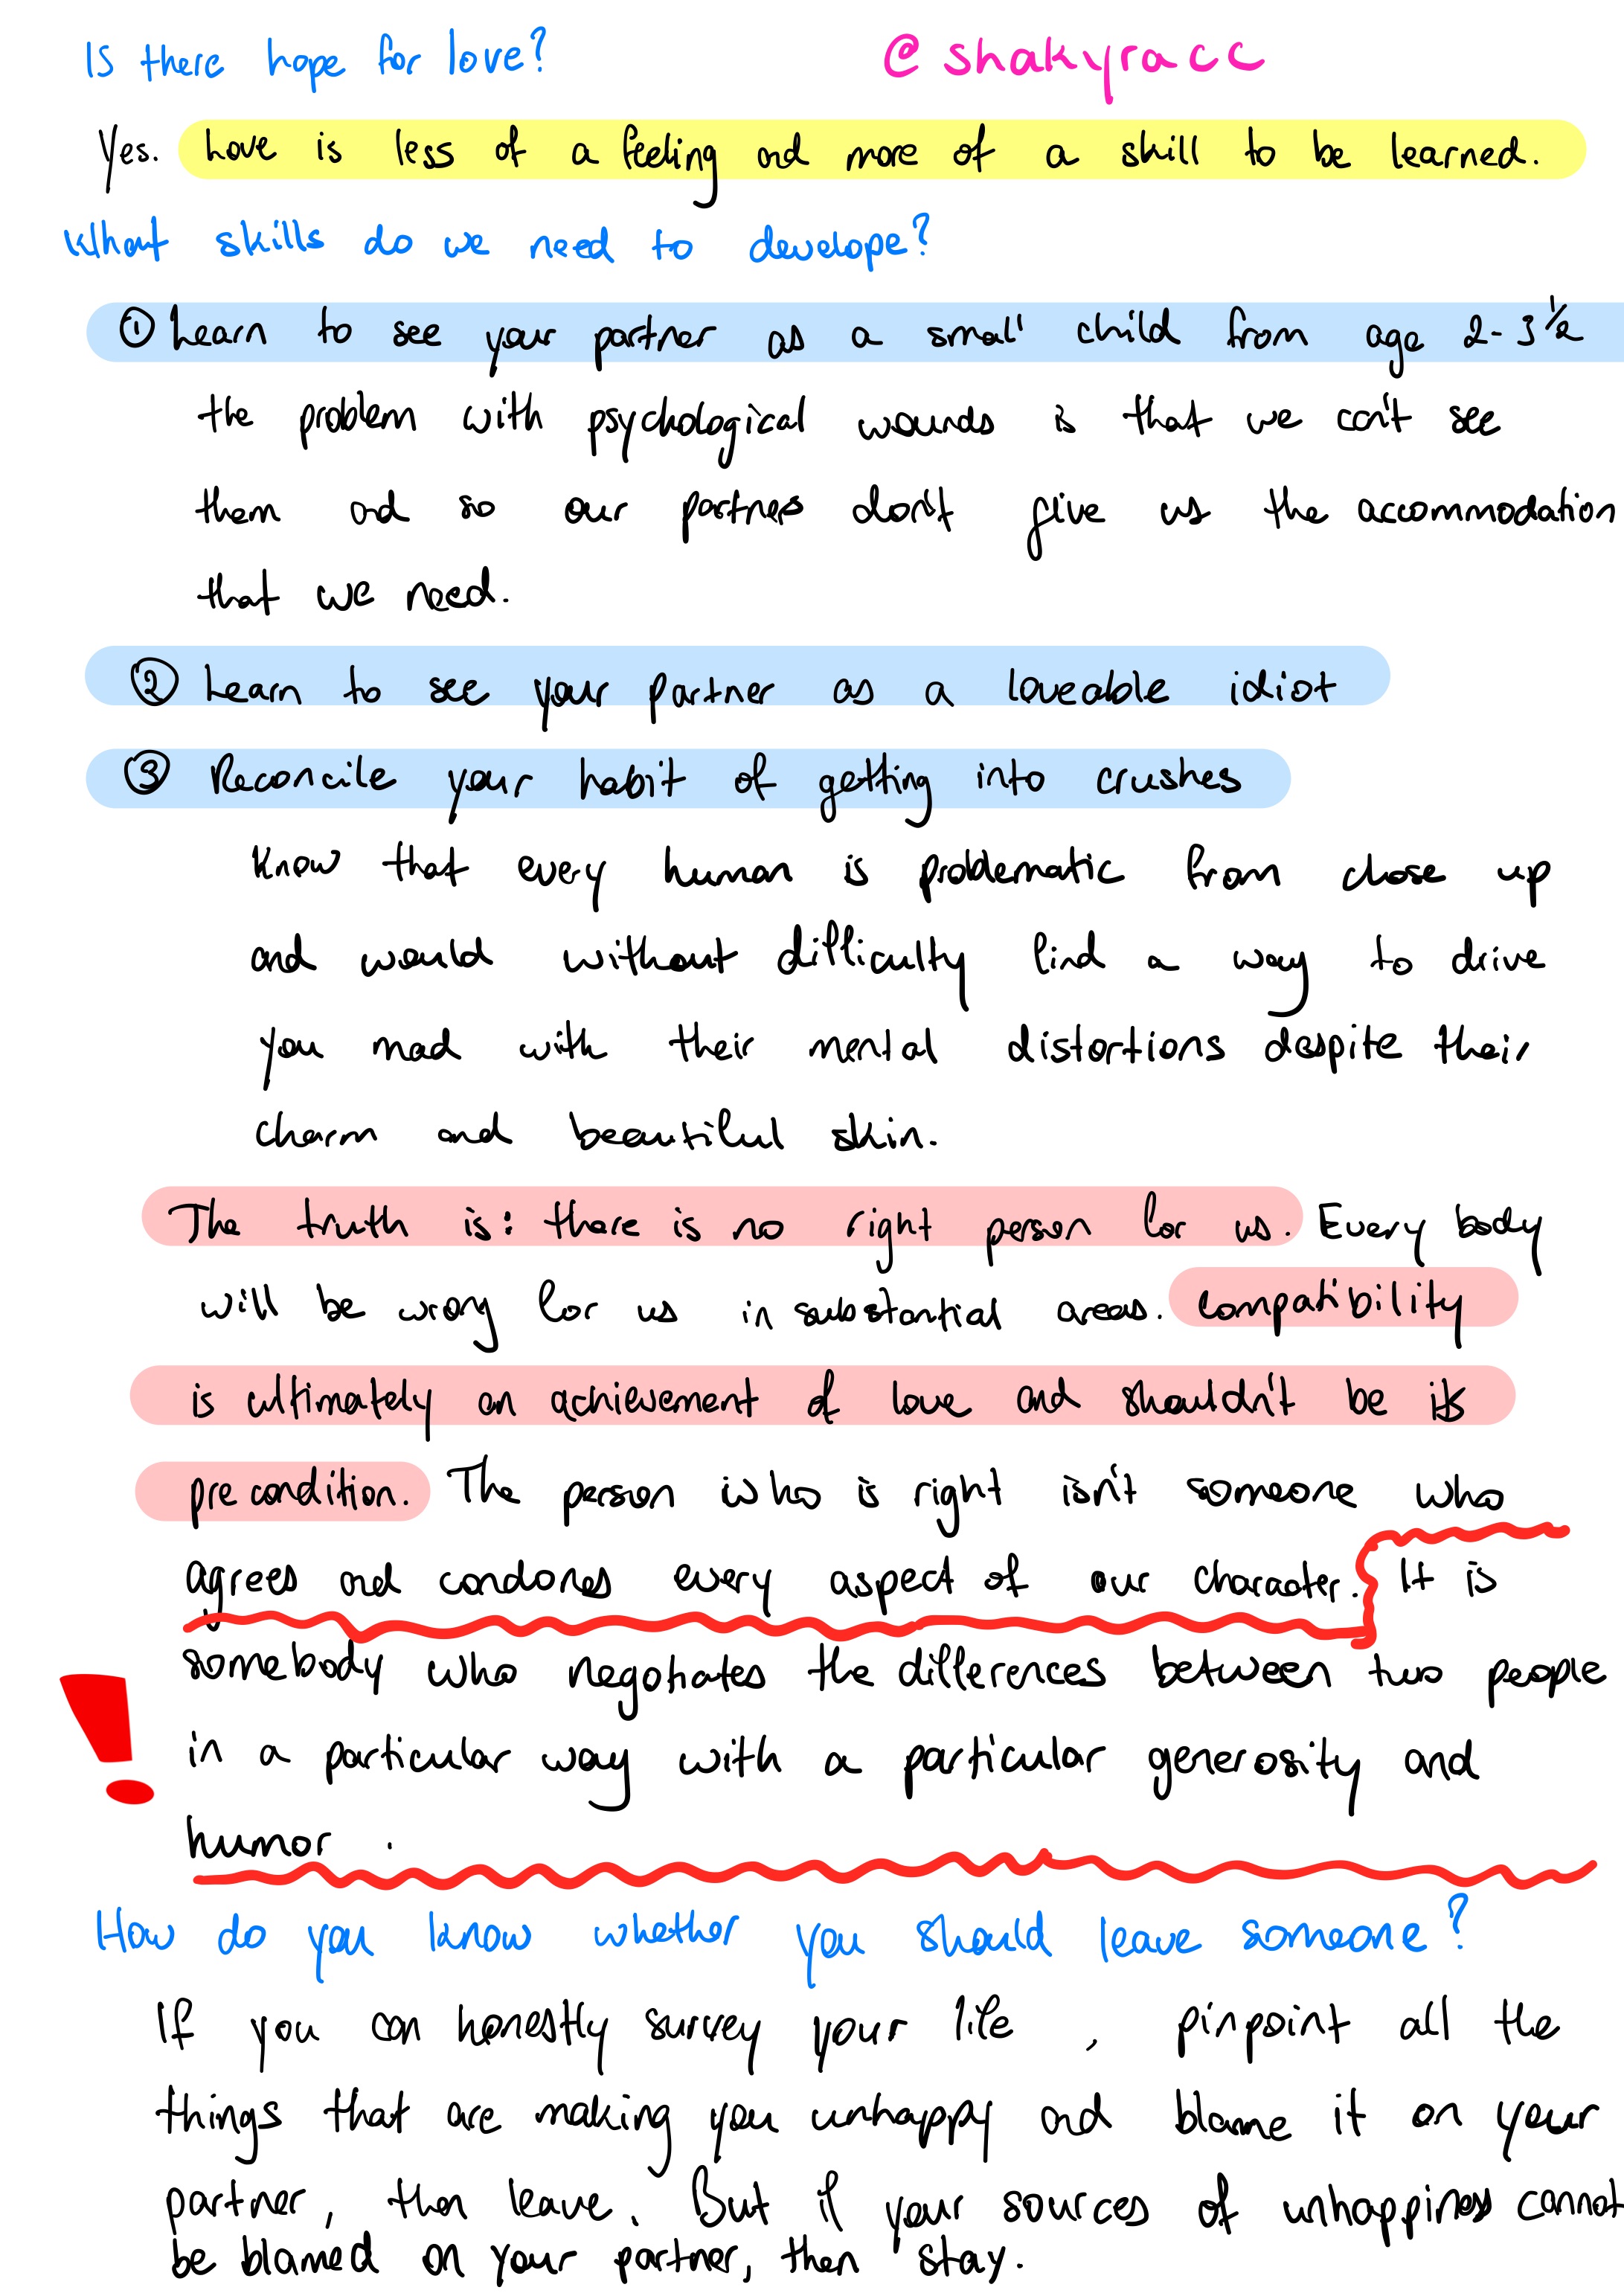 Is there hope for love? @shakyracc
Yes. Love is less of a feeling and more of a skill to be learned.
What skills do we need to develope?
① Learn to see your partner as a small child from age 2-3 1/2
the problem with psychological wounds is that we can't see
them and so our partners don't give us the accommodation
that we need.
② Learn to see your partner as a loveable idiot
③ Reconcile your habit of getting into crushes
Know that every human is problematic from close up
and would without difficulty find a way to drive
you mad with their mental distortions despite their
charm and beautiful skin.
The truth is: there is no right person for us. Every body
will be wrong for us in substantial areas. Compatibility
is ultimately an achievement of love and shouldn't be its
pre condition. The person who is right isn't someone who
agrees and condones every aspect of our character. It is
somebody who negotiates the differences between two people
in a particular way with a particular generosity and
humor.
How do you know whether you should leave someone?
If you can honestly survey your life, pinpoint all the
things that are making you unhappy and blame it on your
partner, then leave. But if your sources of unhappiness cannot
be blamed on your partner, then stay.